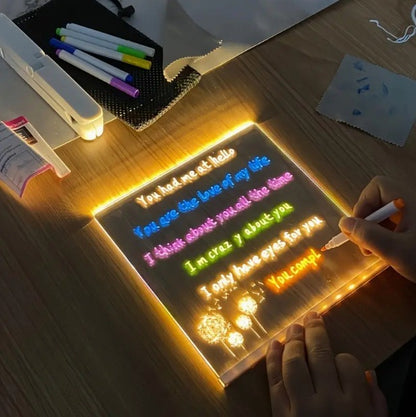 You had me at hello
You are the love of my life
I think about you all the time
I m crazy about you
I only have eyes for you
You compl